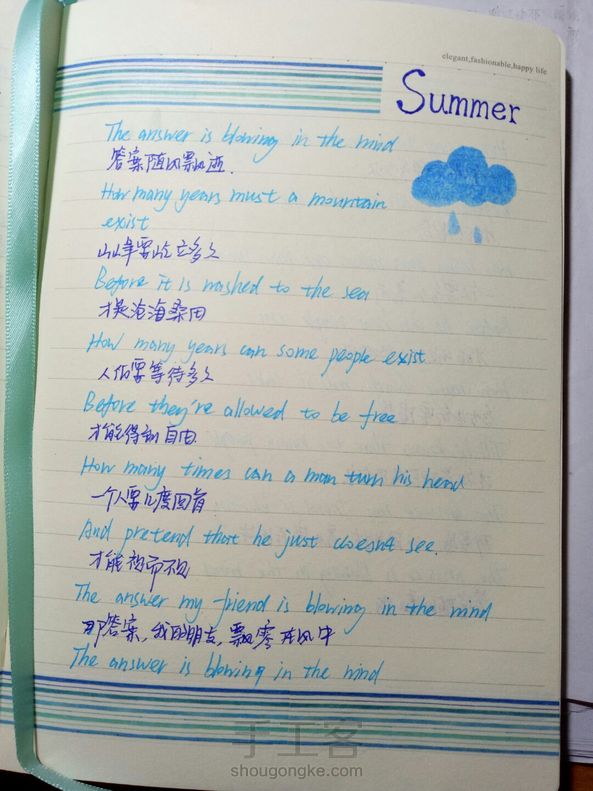 elegant,fashionable,happy life
Summer
The answer is blowing in the mind
答案随风飘逝.
How many years must a mountain
exist
山峰要屹立多久
Before it is washed to the sea
才是沧海桑田
How many years can some people exist
人们要等待多久
Before they're allowed to be free
才能得到自由
How many times can a man turn his head
一个人要几度回首
And pretend that he just doesn't see.
才能视而不见
The answer my friend is blowing in the mind
那答案,我的朋友,飘零在风中
The answer is blowing in the mind
手工客
shougongke.com